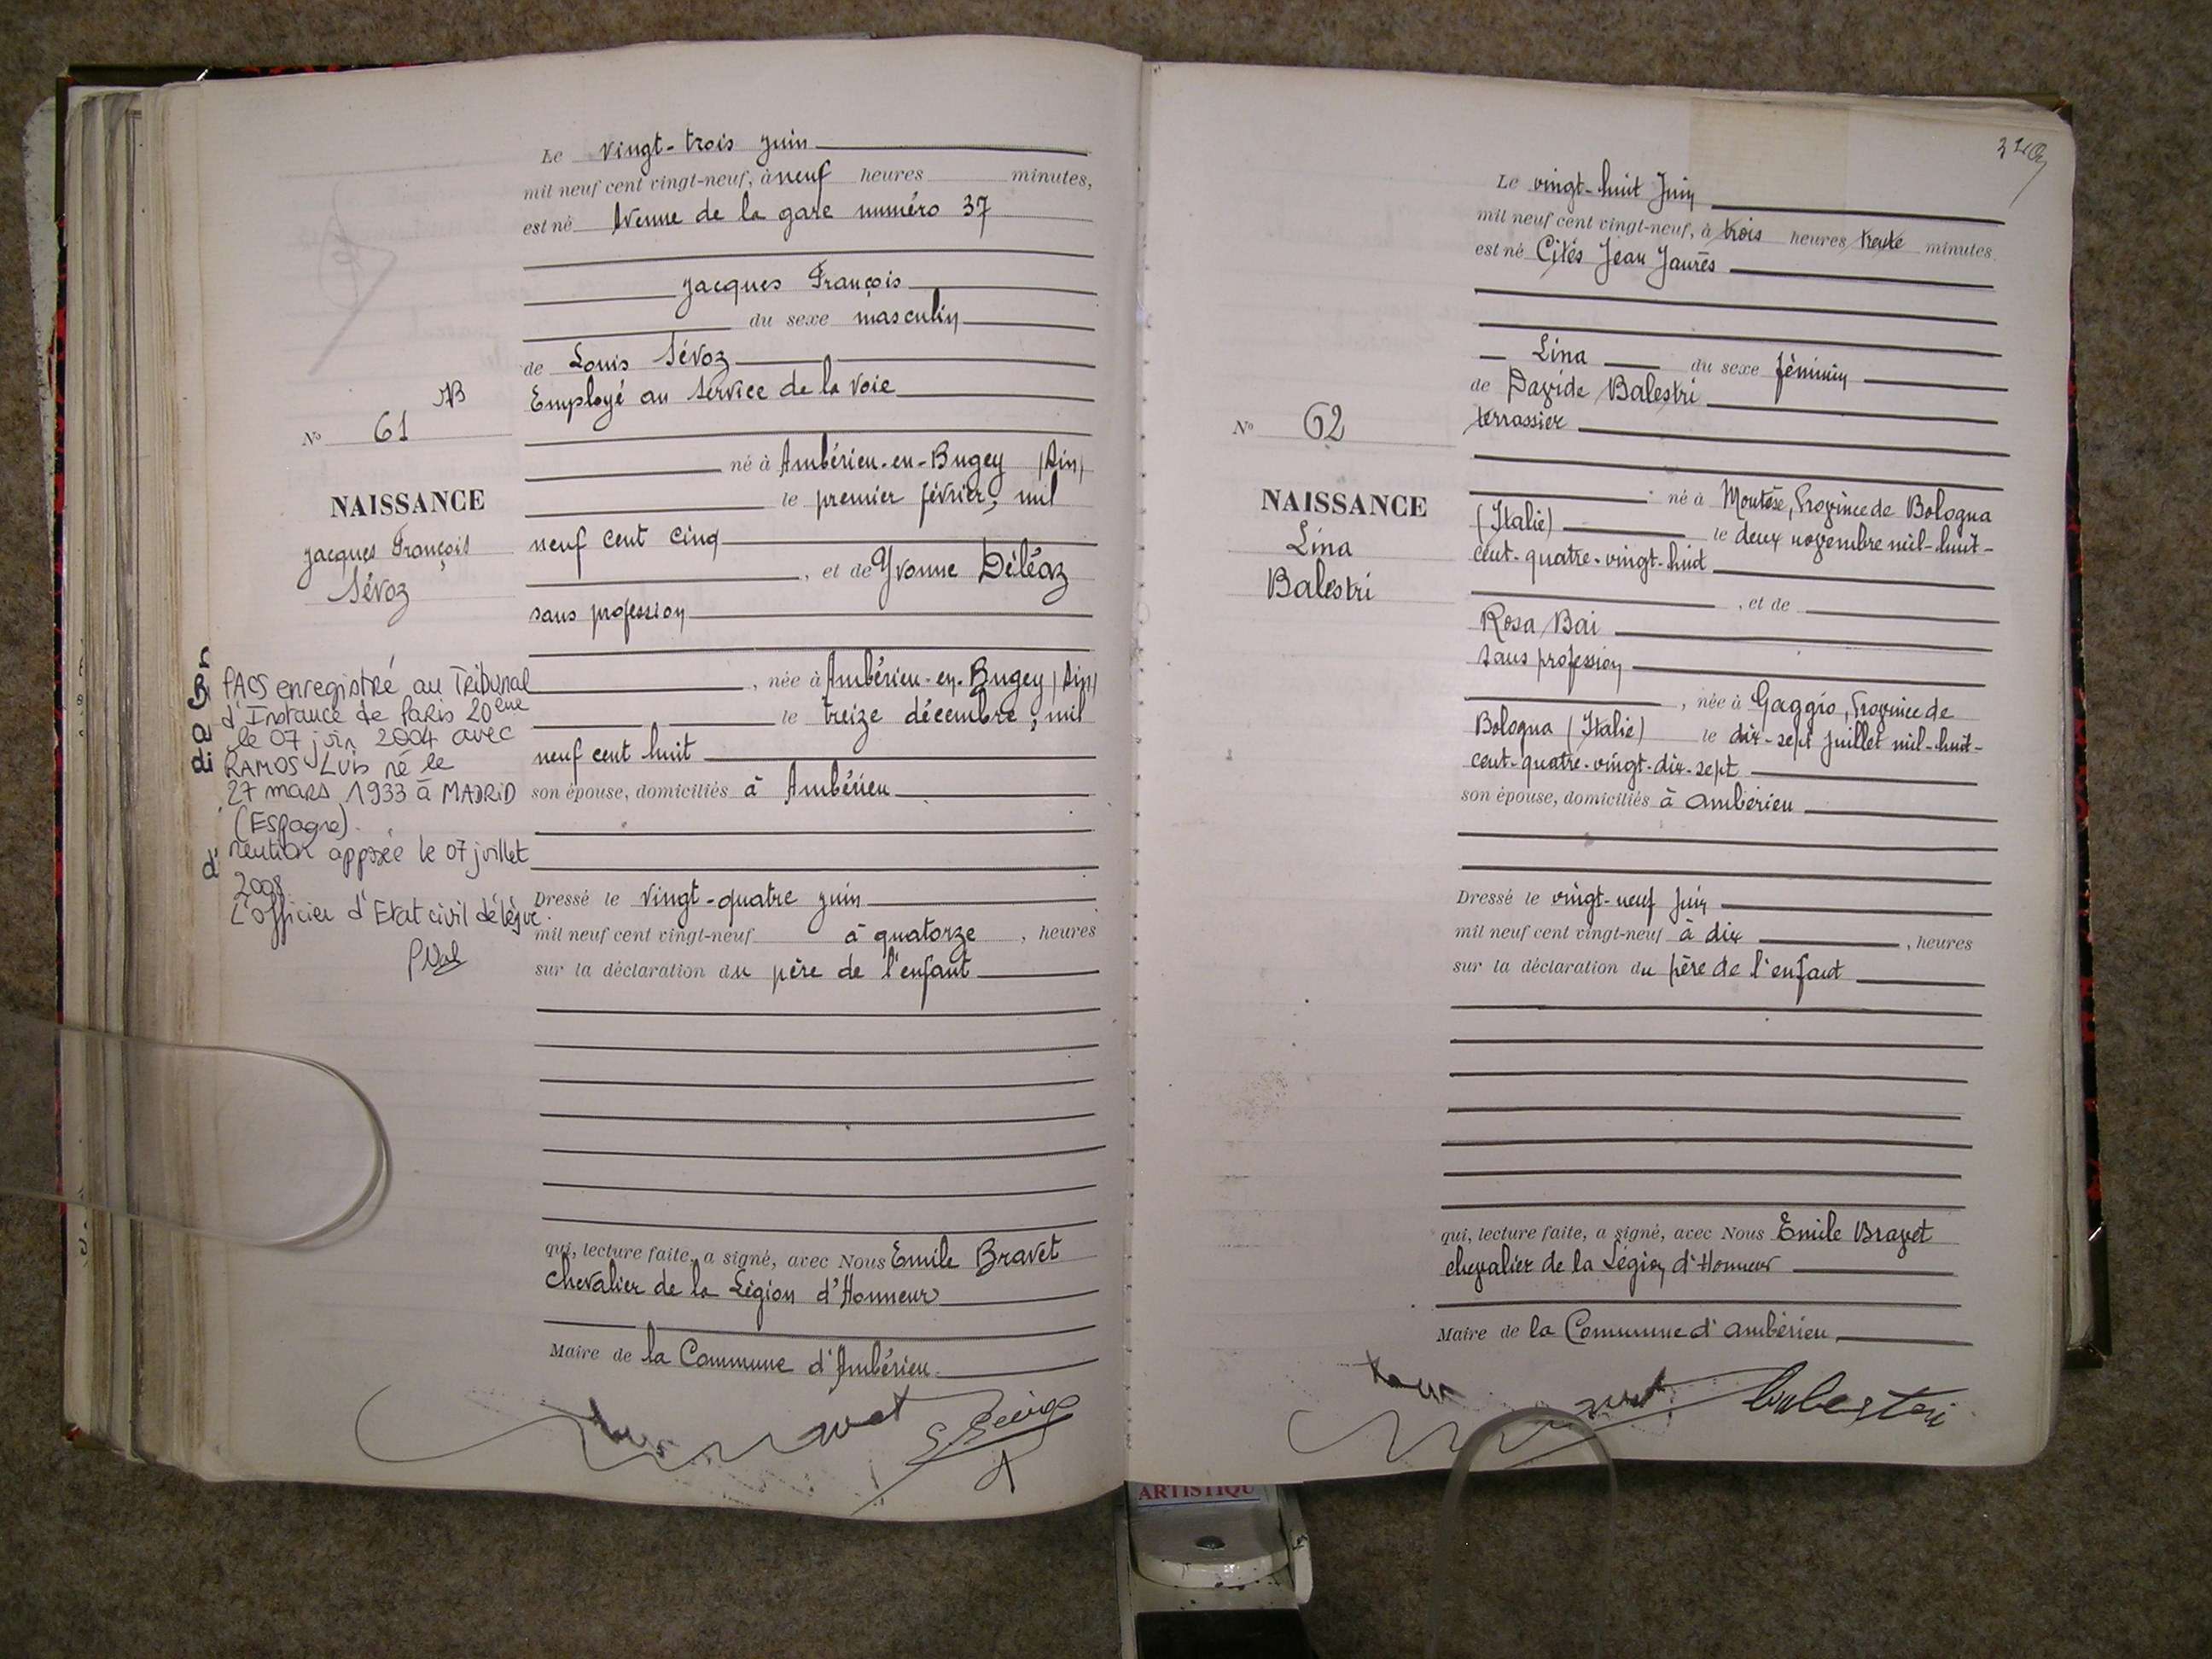 Le vingt-trois juin
mil neuf cent vingt-neuf, à neuf heures minutes,
est né Avenue de la gare numéro 37
Jacques François
du sexe masculin
de Louis Sévoz
Employé au Service de la voie
né à Ambérieu-en-Bugey (Ain)
le premier février, mil
neuf cent cinq
, et de Yvonne Déléaz
sans profession
, née à Ambérieu-en-Bugey (Ain)
le treize décembre, mil
neuf cent huit
son épouse, domiciliés à Ambérieu
Dressé le vingt-quatre juin
mil neuf cent vingt-neuf à quatorze , heures
sur la déclaration du père de l'enfant
qui, lecture faite, a signé, avec Nous Emile Bravet
chevalier de la Légion d'Honneur
Maire de la Commune d'Ambérieu.
NB
No 61
NAISSANCE
Jacques François
Sévoz
PACS enregistré au Tribunal
d'Instance de Paris 20ème
le 07 juin 2004 avec
RAMOS Luis né le
27 mars 1933 à MADRID
(Espagne).
mention apposée le 07 juillet
2008
L'officier d'Etat civil délégué.
Le vingt-huit Juin
mil neuf cent vingt-neuf, à trois heures trente minutes
est né Cités Jean Jaurès
Lina du sexe féminin
de Davide Balestri
terrassier
né à Montése, Province de Bologna
(Italie) le deux novembre mil-huit-
cent-quatre-vingt-huit
, et de
Rosa Bai
sans profession
, née à Gaggio, Province de
Bologna (Italie) le dix-sept juillet mil-huit-
cent-quatre-vingt-dix-sept
son épouse, domiciliés à Ambérieu
Dressé le vingt-neuf Juin
mil neuf cent vingt-neuf à dix , heures
sur la déclaration du père de l'enfant
qui, lecture faite, a signé, avec Nous Emile Bravet
chevalier de la Légion d'Honneur
Maire de la Commune d'Ambérieu
balestri
No 62
NAISSANCE
Lina
Balestri
ARTISTIQU